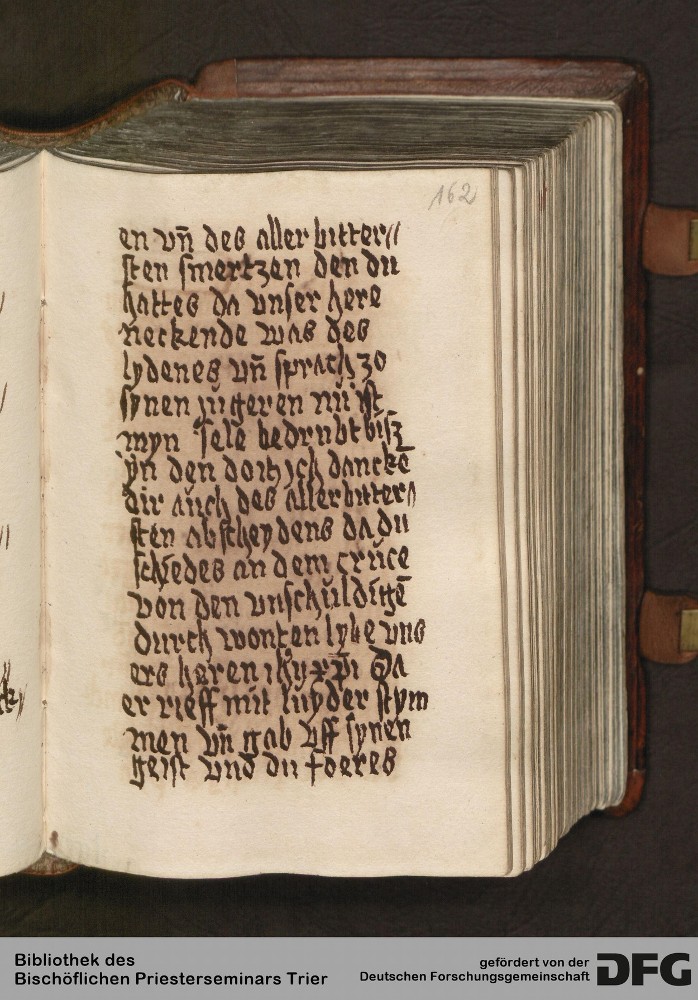 162
en vn̄ des aller bitter//
sten smertzen den du
hattes da unser here
neckende was des
lydenes vn̄ sprach zo
synen jūgeren nū ist
myn sele bedrubt bisz
yn den doit jch dancke
dir auch des allerbitter//
sten abscheydens da du
schiedes an dem crúce
von den vnschuldigē
durch wonten lybe vns
ers heren ihu xp̄i da
er rieff mit luyder stym
men vn̄ gab vff synen
geist vnd du foeres
Bibliothek des
Bischöflichen Priesterseminars Trier
gefördert von der
Deutschen Forschungsgemeinschaft
DFG